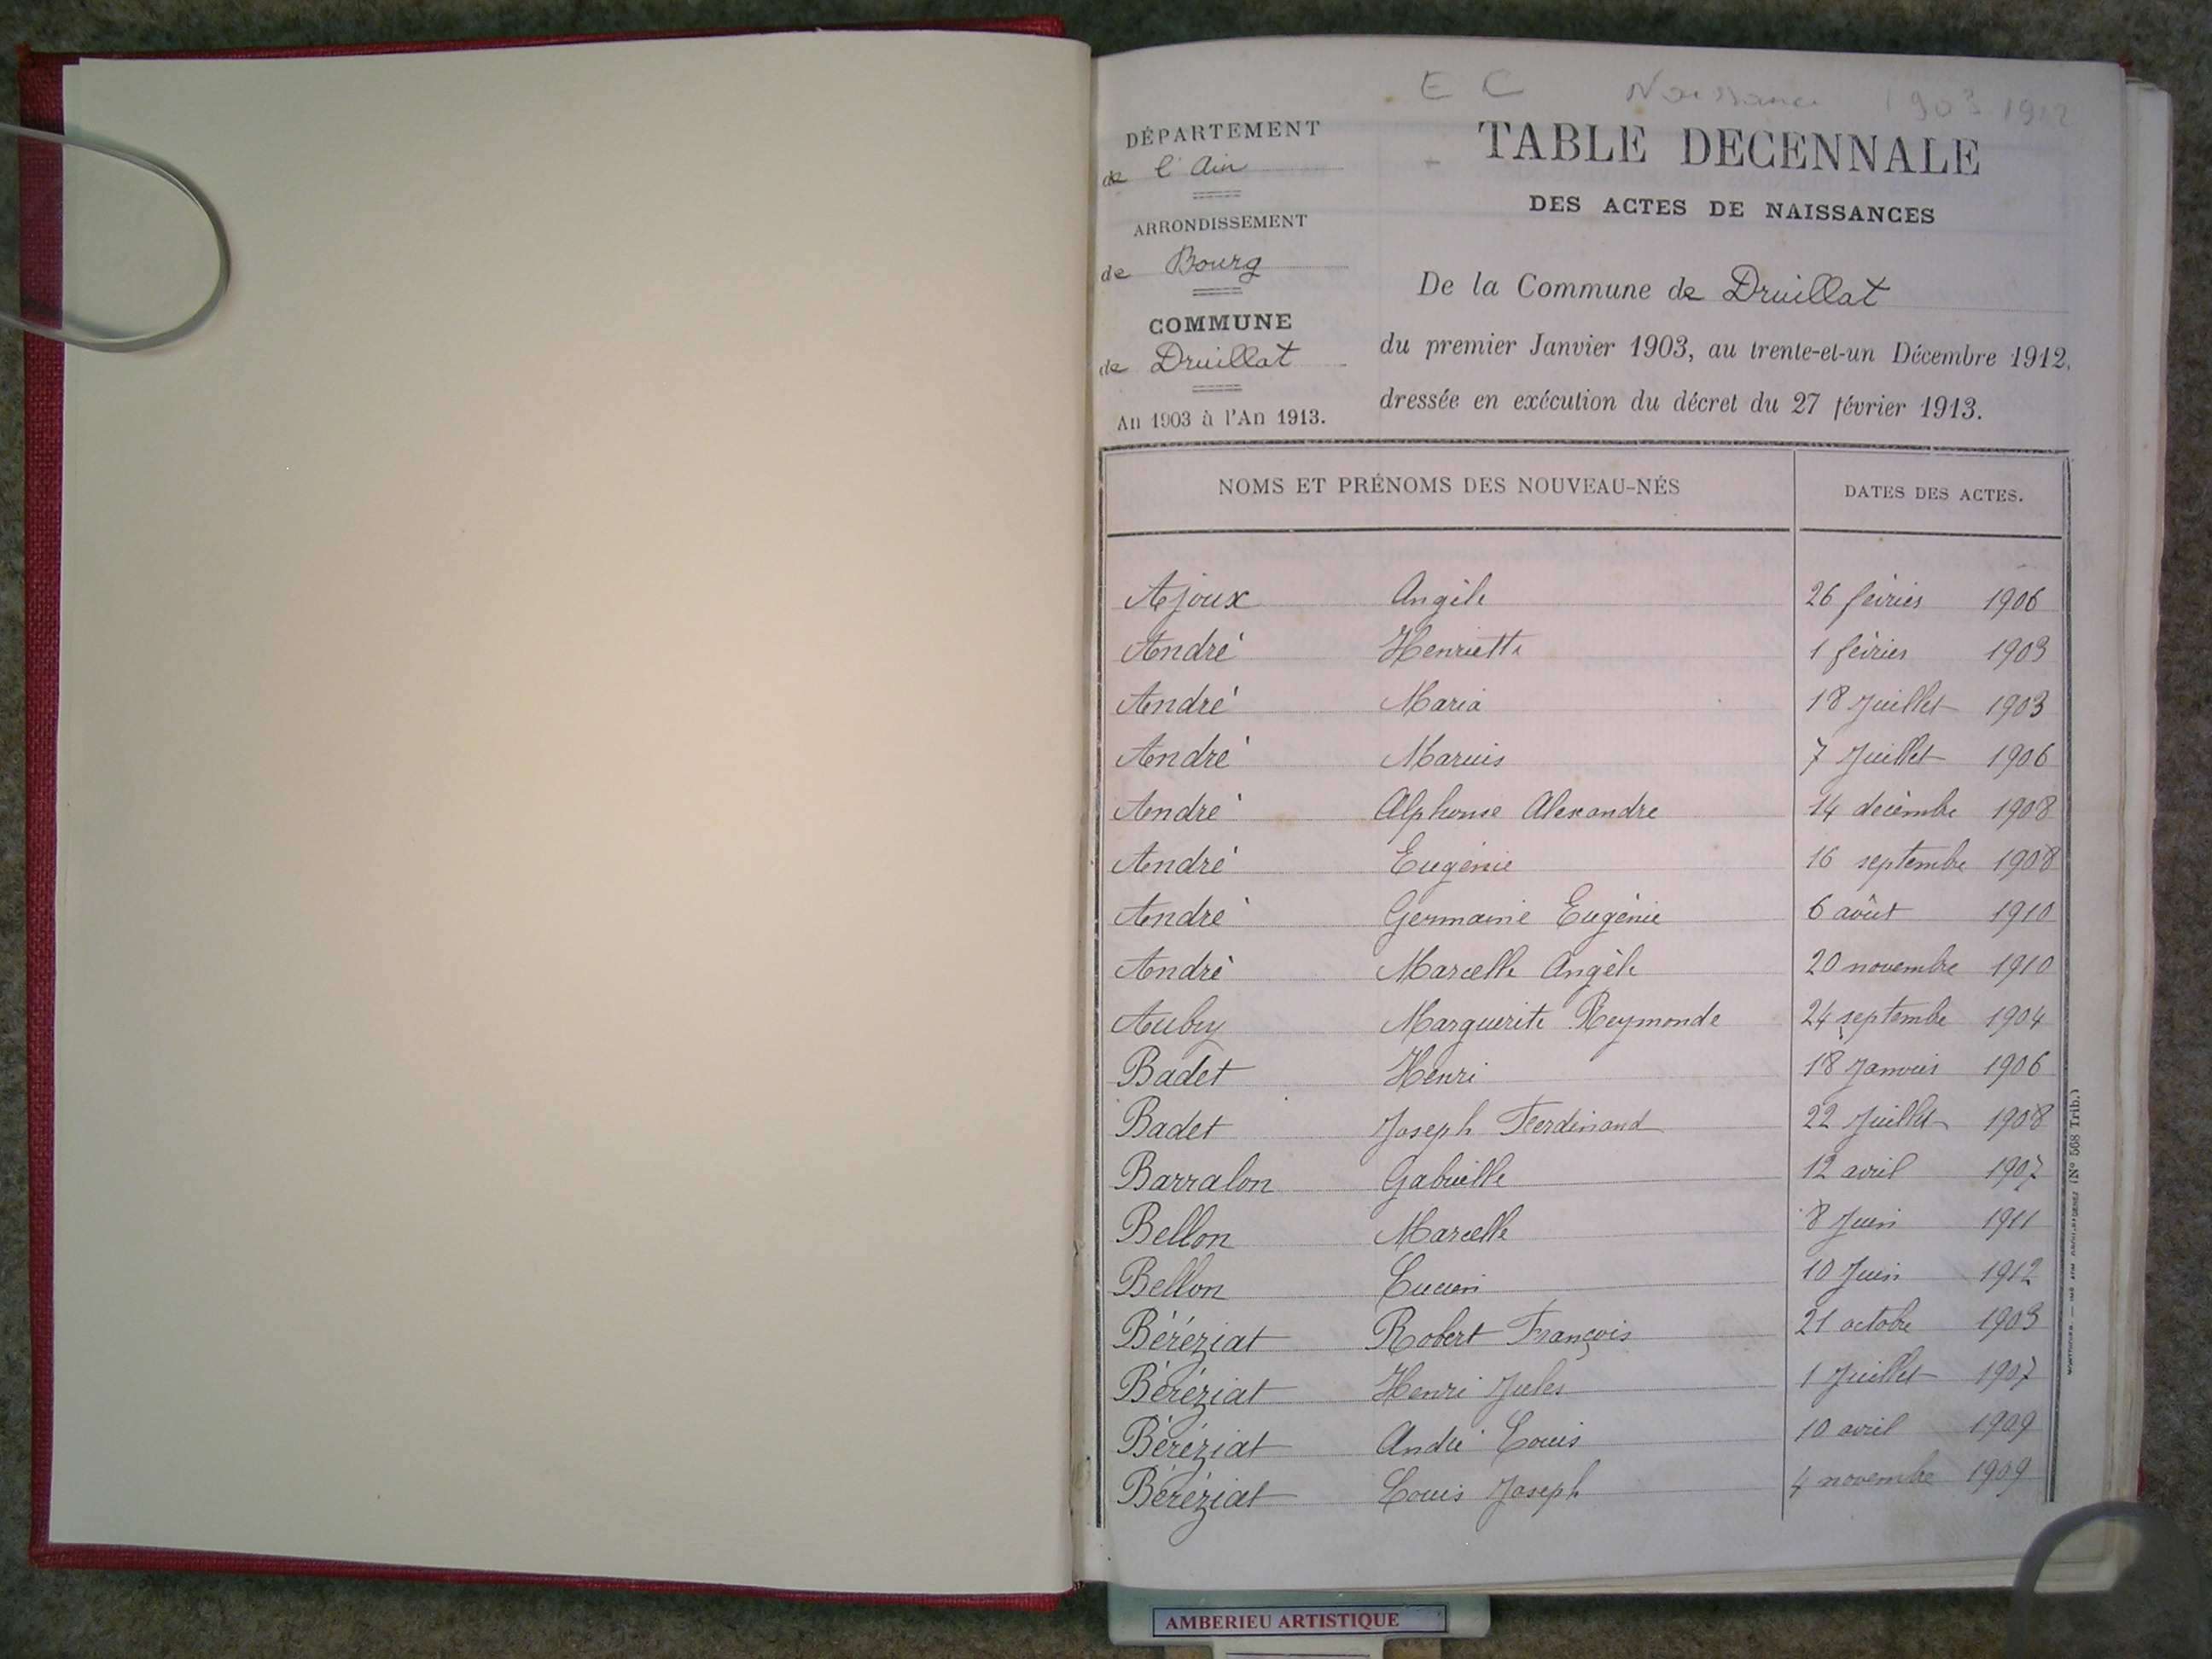 E C Naissance 1903 1912
DÉPARTEMENT
de l'Ain
ARRONDISSEMENT
de Bourg
COMMUNE
de Druillat
An 1903 à l'An 1913.
TABLE DECENNALE
DES ACTES DE NAISSANCES
De la Commune de Druillat
du premier Janvier 1903, au trente-et-un Décembre 1912,
dressée en exécution du décret du 27 février 1913.
NOMS ET PRÉNOMS DES NOUVEAU-NÉS DATES DES ACTES.
Ajoux Angèle 26 février 1906
André Henriette 1 février 1903
André Maria 18 Juillet 1903
André Marius 7 Juillet 1906
André Alphonse Alexandre 14 décembre 1908
André Eugénie 16 septembre 1908
André Germaine Eugénie 6 août 1910
André Marcelle Angèle 20 novembre 1910
Aubry Marguerite Reymonde 24 septembre 1904
Badet Henri 18 Janvier 1906
Badet Joseph Ferdinand 22 Juillet 1908
Barralon Gabrielle 12 avril 1907
Bellon Marcelle 8 Juin 1911
Bellon Lucien 10 Juin 1912
Béréziat Robert François 21 octobre 1903
Béréziat Henri Jules 1 Juillet 1907
Béréziat André Louis 10 avril 1909
Béréziat Louis Joseph 4 novembre 1909
(Nº 568 Trib.)
AMBERIEU ARTISTIQUE